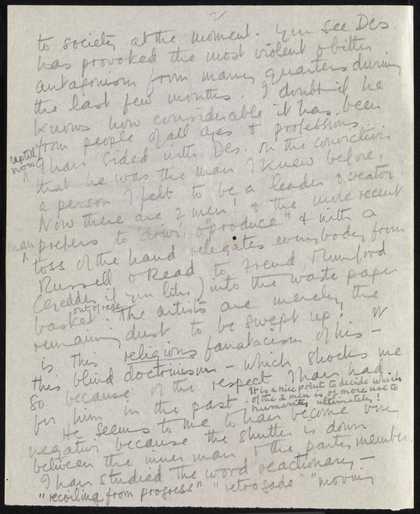 to society at the moment. You see Des.
has provoked the most violent & bitter
antagonism from many quarters during
the last few months. I doubt if he
knows how considerable it has been
from people of all ages & professions.
until now I have sided with Des. on the conviction
that he was the man I knew before,
a person I felt to be a leader & creator
Now there are 2 men! & the more recent
man prefers to "crow & produce" & with a
toss of the hand relegates everybody from
Russell & Read to Freud Mumford
(Geddes if you like) into the waste paper
basket. The artists are merely the
remaining dust to be swept up! It
is this religious fanaticism of his –
this blind doctrinism – which shocks me
so because of the respect I have had
for him in the past – It is a nice point to decide which
of the 2 men is of more use to
humanity ultimately!
He seems to me to have become
negative because the shutter is down
between the inner man & the party member
I have studied the word reactionary –
"recoiling from progress" "retrograde" "moving